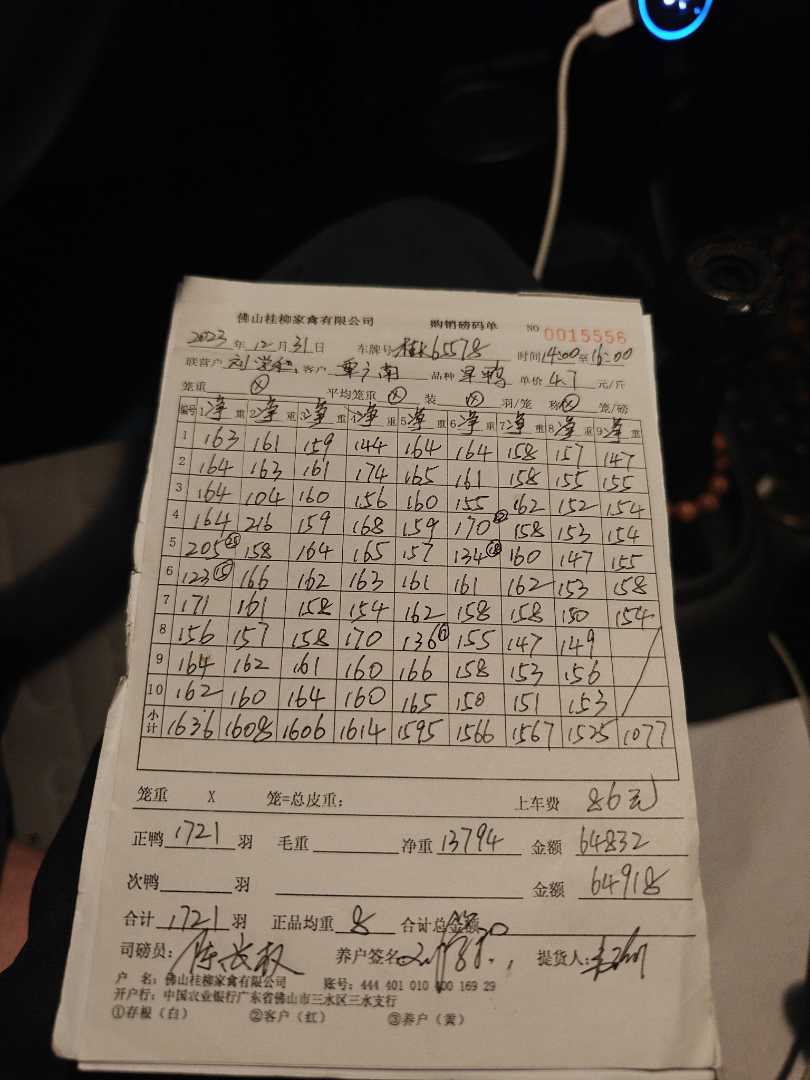 佛山桂柳家禽有限公司 购销磅码单 NO 0015556
2023 年 12 月 31 日 车牌号 桂K65578 时间 14:00 至 16:00
联营户 刘 客户 覃广南 品种 旱鸭 单价 4.7 元/斤
笼重 X 平均笼重 X 装 X 羽/笼 称 X 笼/磅
编号 1 净 重 2 净 重 3 净 重 4 净 重 5 净 重 6 净 重 7 净 重 8 净 重 9 净 重
1 163 161 159 144 164 164 158 157 147
2 164 163 161 174 165 161 158 155 155
3 164 104 160 156 160 155 162 152 154
4 164 216 159 168 159 170 158 153 154
5 205 158 164 165 157 134 160 147 155
6 123 15 166 162 163 161 161 162 153 158
7 171 161 158 154 162 158 158 150 154
8 156 157 158 170 136 155 147 149
9 164 162 161 160 166 158 153 156
10 162 160 164 160 165 150 151 153
小计 1636 1608 1606 1614 1595 1566 1567 1525 1077
笼重 X 笼=总皮重: 上车费 86元
正鸭 1721 羽 毛重 净重 13794 金额 64832
次鸭 羽 金额 64918
合计 1721 羽 正品均重 8 合计总金额
司磅员: 陈 养户签名 提货人:
户 名: 佛山桂柳家禽有限公司 账号: 444 401 010 400 169 29
开户行: 中国农业银行广东省佛山市三水区三水支行
①存根（白） ②客户（红） ③养户（黄）